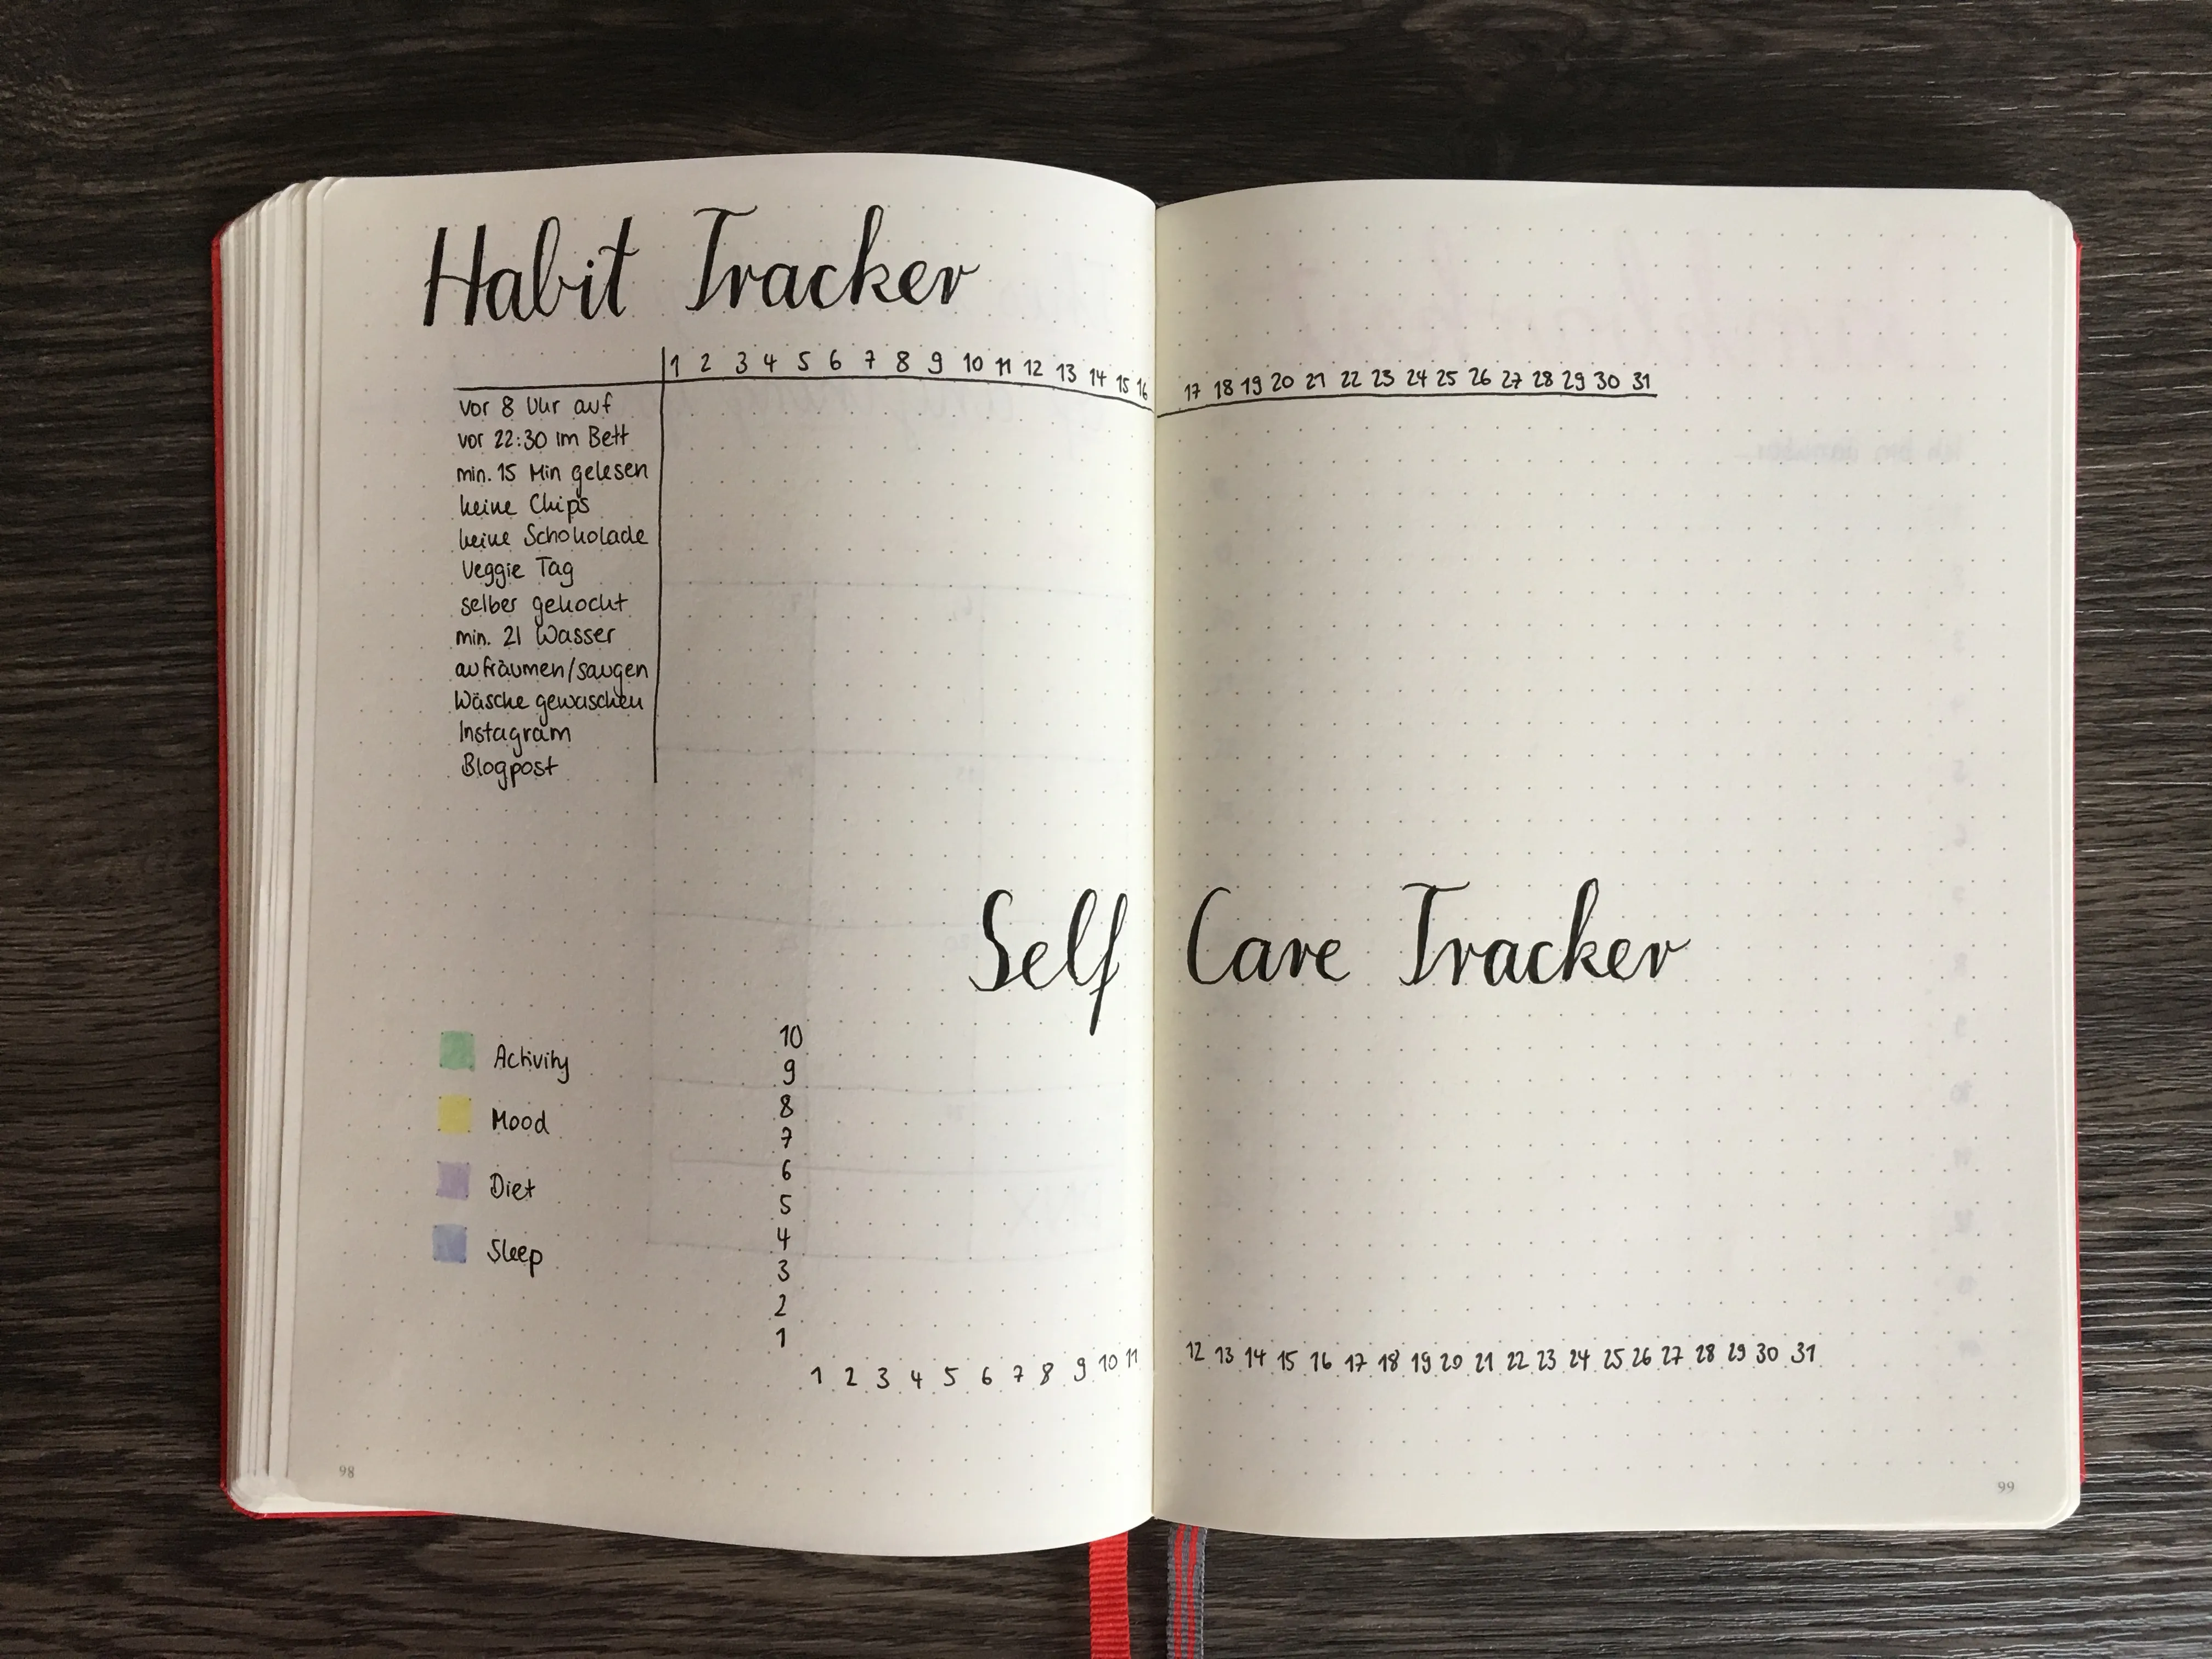 Habit Tracker
1 2 3 4 5 6 7 8 9 10 11 12 13 14 15 16 17 18 19 20 21 22 23 24 25 26 27 28 29 30 31
vor 8 Uhr auf
vor 22:30 im Bett
min. 15 Min gelesen
keine Chips
keine Schokolade
Veggie Tag
selber gekocht
min. 2l Wasser
aufräumen/saugen
Wäsche gewaschen
Instagram
Blogpost
Self Care Tracker
Activity
Mood
Diet
Sleep
10
9
8
7
6
5
4
3
2
1
1 2 3 4 5 6 7 8 9 10 11 12 13 14 15 16 17 18 19 20 21 22 23 24 25 26 27 28 29 30 31
98
99